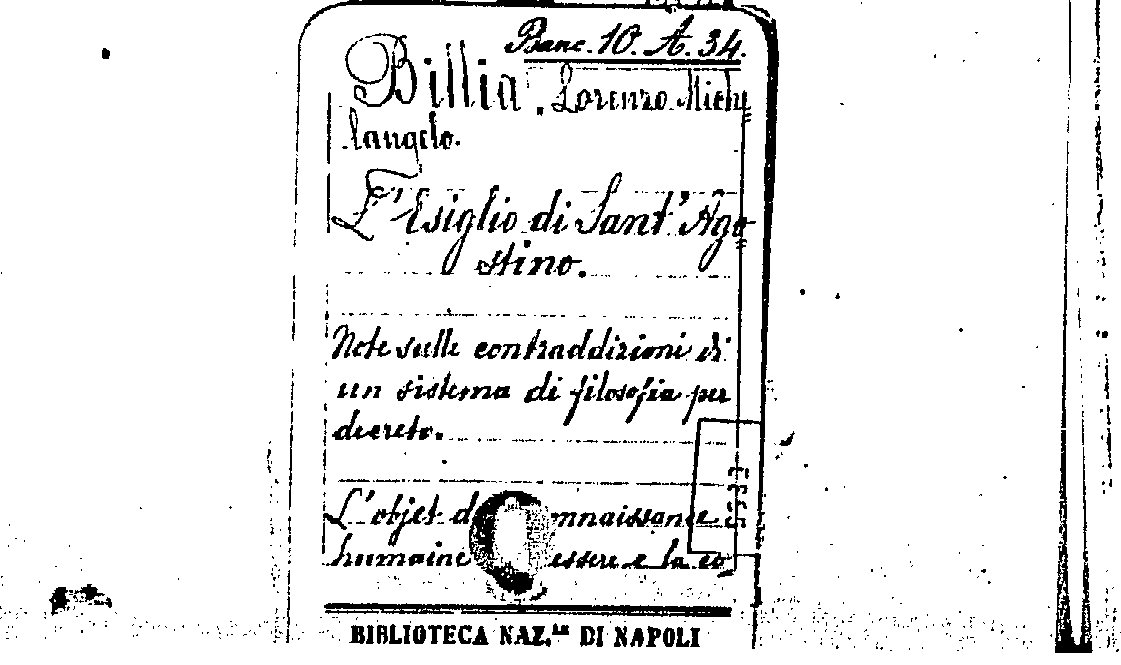 Banc. 10. A. 34.
Billia, Lorenzo Miche
langelo.
L'Esiglio di Sant'Ago
stino.
Note sulle contraddizioni di
un sistema di filosofia per
decreto.
L'objet d nnaissance
humaine essere e la co
BIBLIOTECA NAZ.LE DI NAPOLI